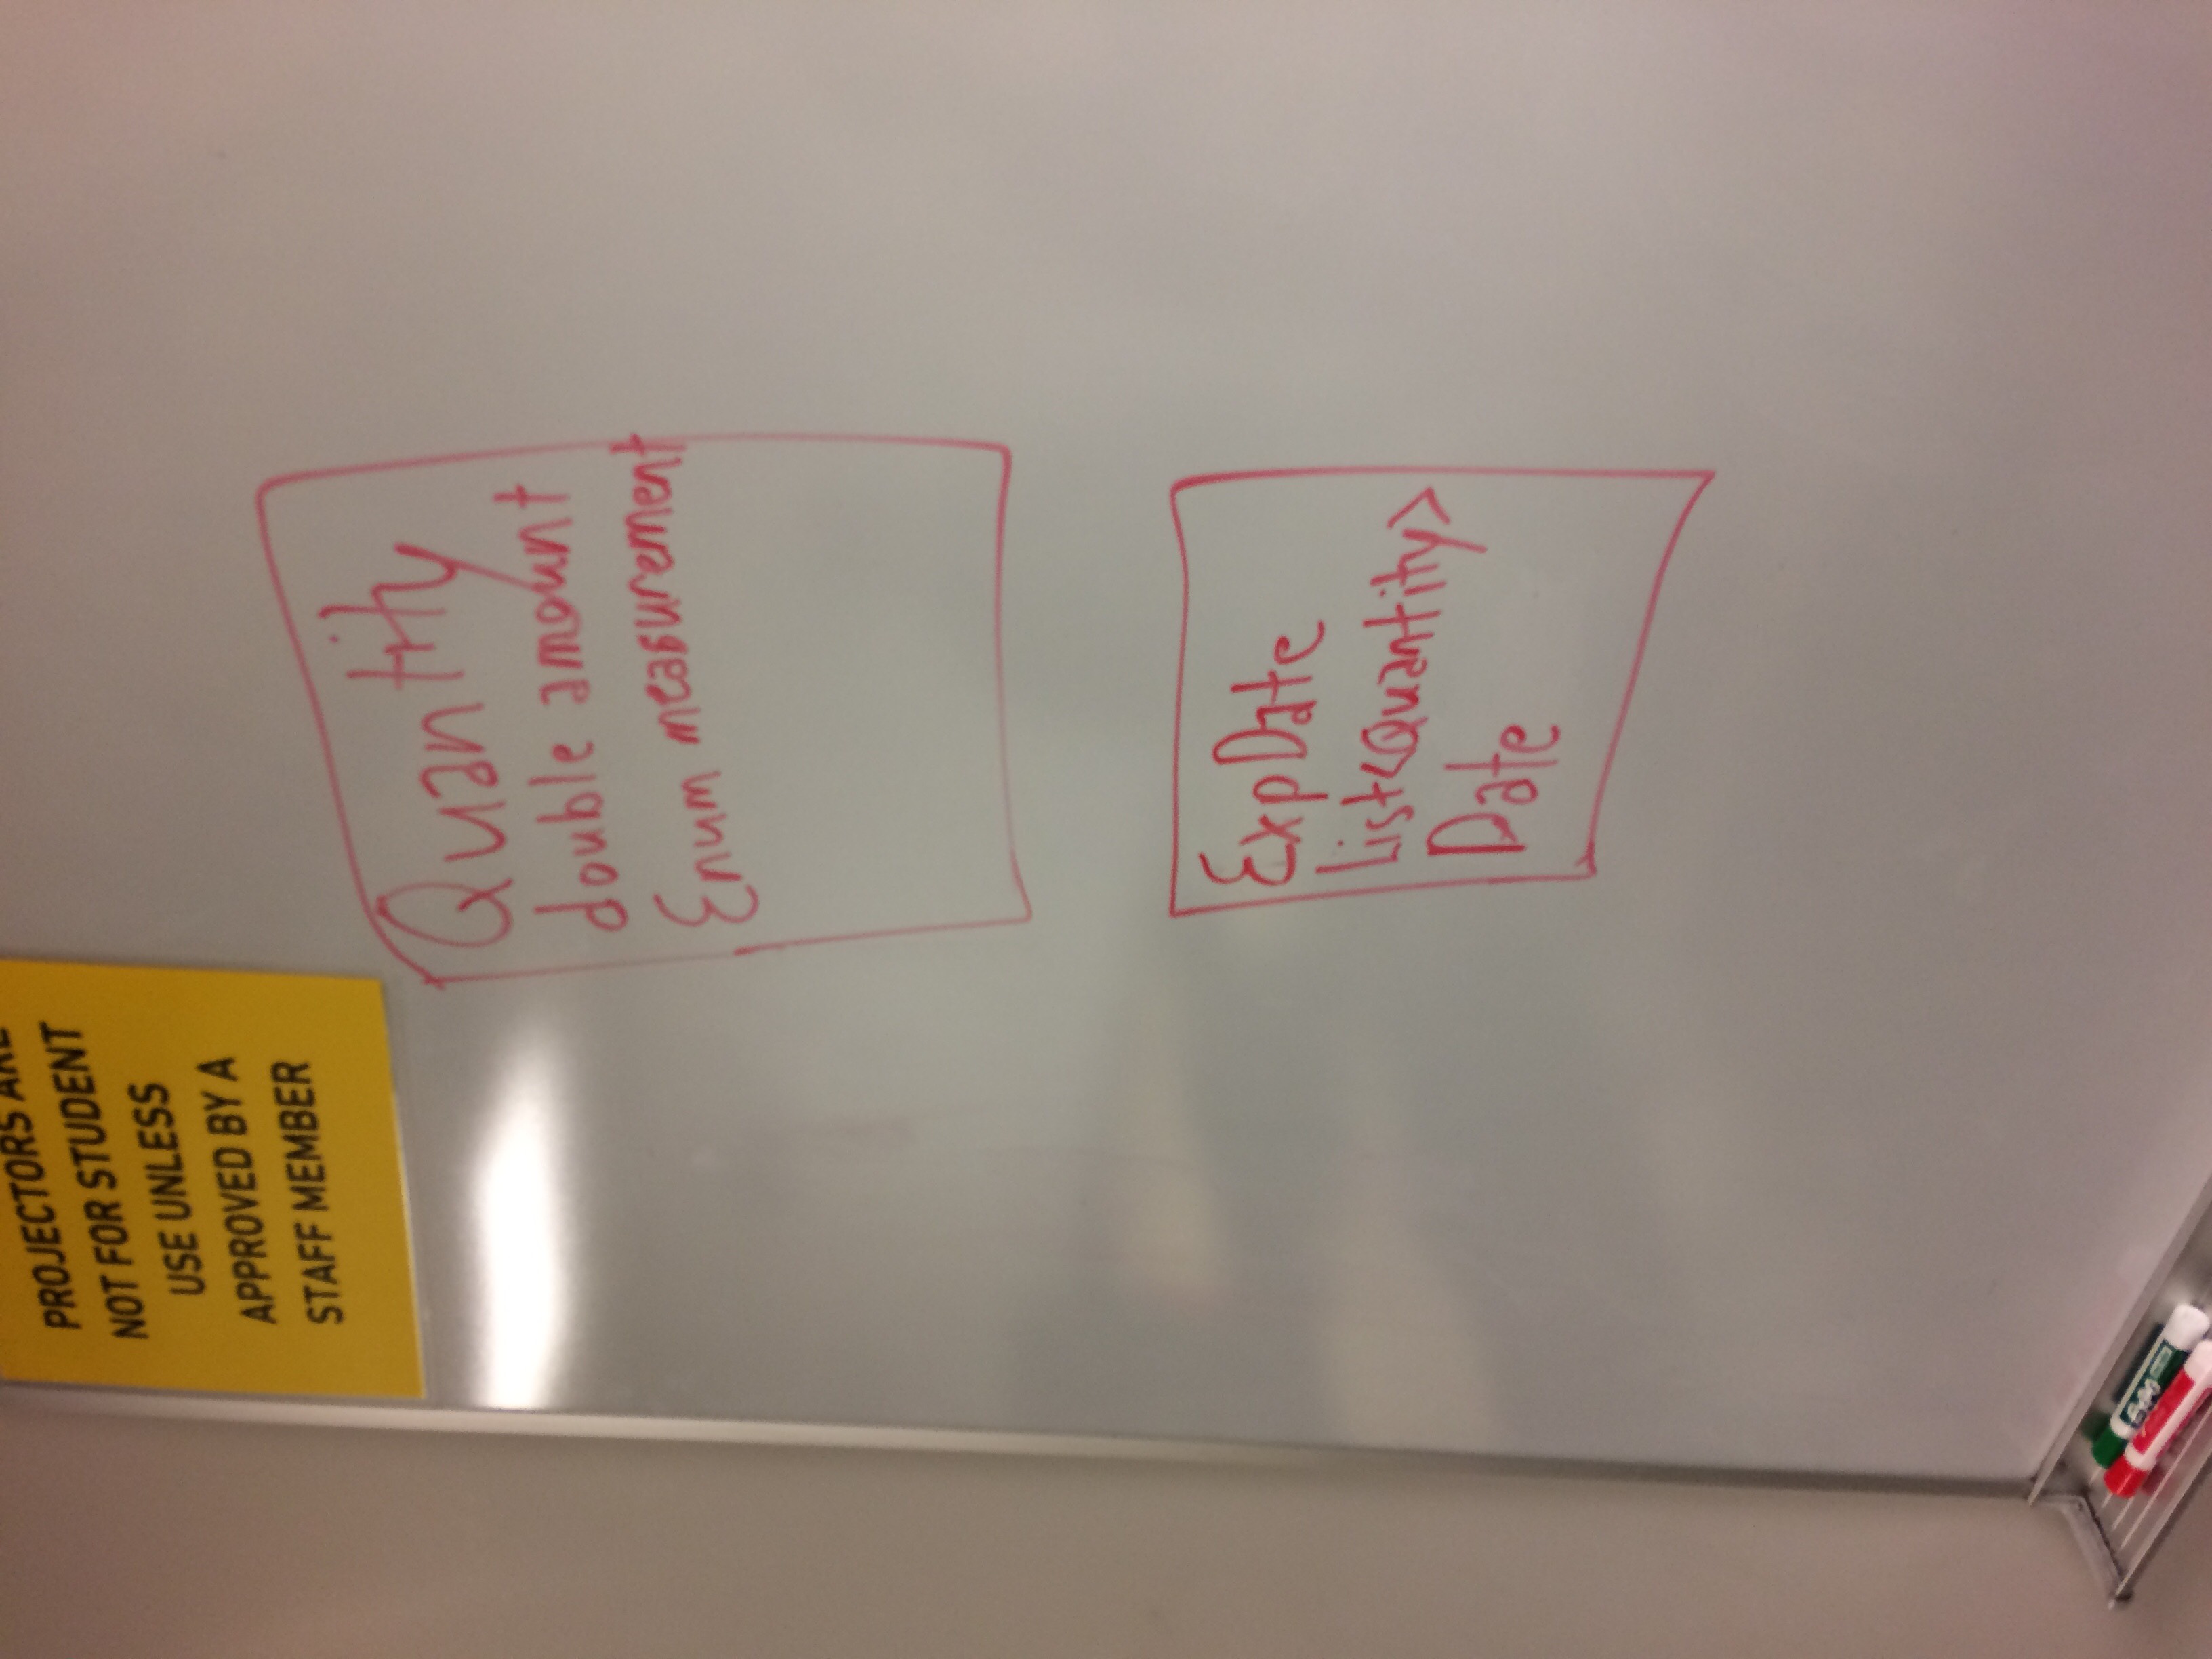 PROJECTORS ARE
NOT FOR STUDENT
USE UNLESS
APPROVED BY A
STAFF MEMBER
Quantity
double amount
Enum measurement
ExpDate
List<Quantity>
Date
EXPO